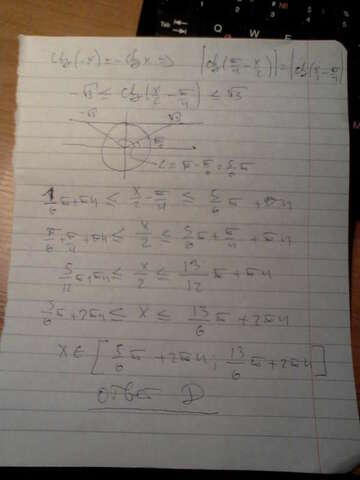 ctg(-x) = -ctg x ⇒ |ctg(π/4 - x/2)| = |ctg(x/2 - π/4)|
-√3 ≤ ctg(x/2 - π/4) ≤ √3
-√3 √3
π/6
L = π - π/6 = 5/6 π
1/6 π + πn ≤ x/2 - π/4 ≤ 5/6 π + πn
π/6 + π/4 + πn ≤ x/2 ≤ 5/6 π + π/4 + πn
5/12 π + πn ≤ x/2 ≤ 13/12 π + πn
5/6 π + 2πn ≤ x ≤ 13/6 π + 2πn
x ∈ [5/6 π + 2πn ; 13/6 π + 2πn]
ответ D